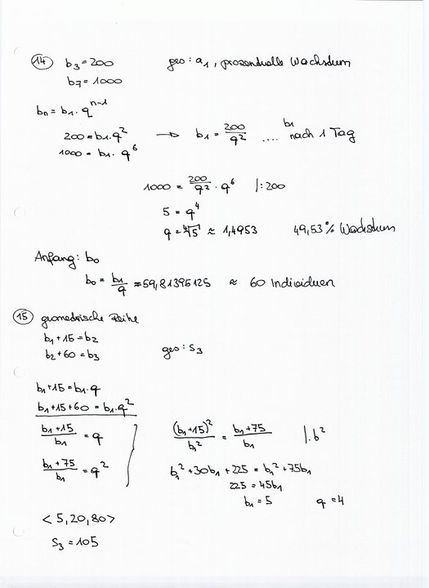 14 b₃ = 200 ges: a₁, prozentuelle Wachstum
b₇ = 1000
bₙ = b₁ · qⁿ⁻¹
200 = b₁ · q² → b₁ = 200/q² .... b₁ nach 1 Tag
1000 = b₁ · q⁶
1000 = 200/q² · q⁶ |:200
5 = q⁴
q = ⁴√5 ≈ 1,4953 49,53% Wachstum
Anfang: b₀
b₀ = b₁/q = 59,81395125 ≈ 60 Individuen
15 geometrische Reihe
b₁ + 15 = b₂
b₂ + 60 = b₃ ges: S₃
b₁ + 15 = b₁ · q
b₁ + 15 + 60 = b₁ · q²
(b₁ + 15)/b₁ = q (b₁ + 15)²/b₁² = (b₁ + 75)/b₁ | · b²
(b₁ + 75)/b₁ = q² b₁² + 30b₁ + 225 = b₁² + 75b₁
225 = 45b₁
b₁ = 5 q = 4
< 5, 20, 80 >
S₃ = 105